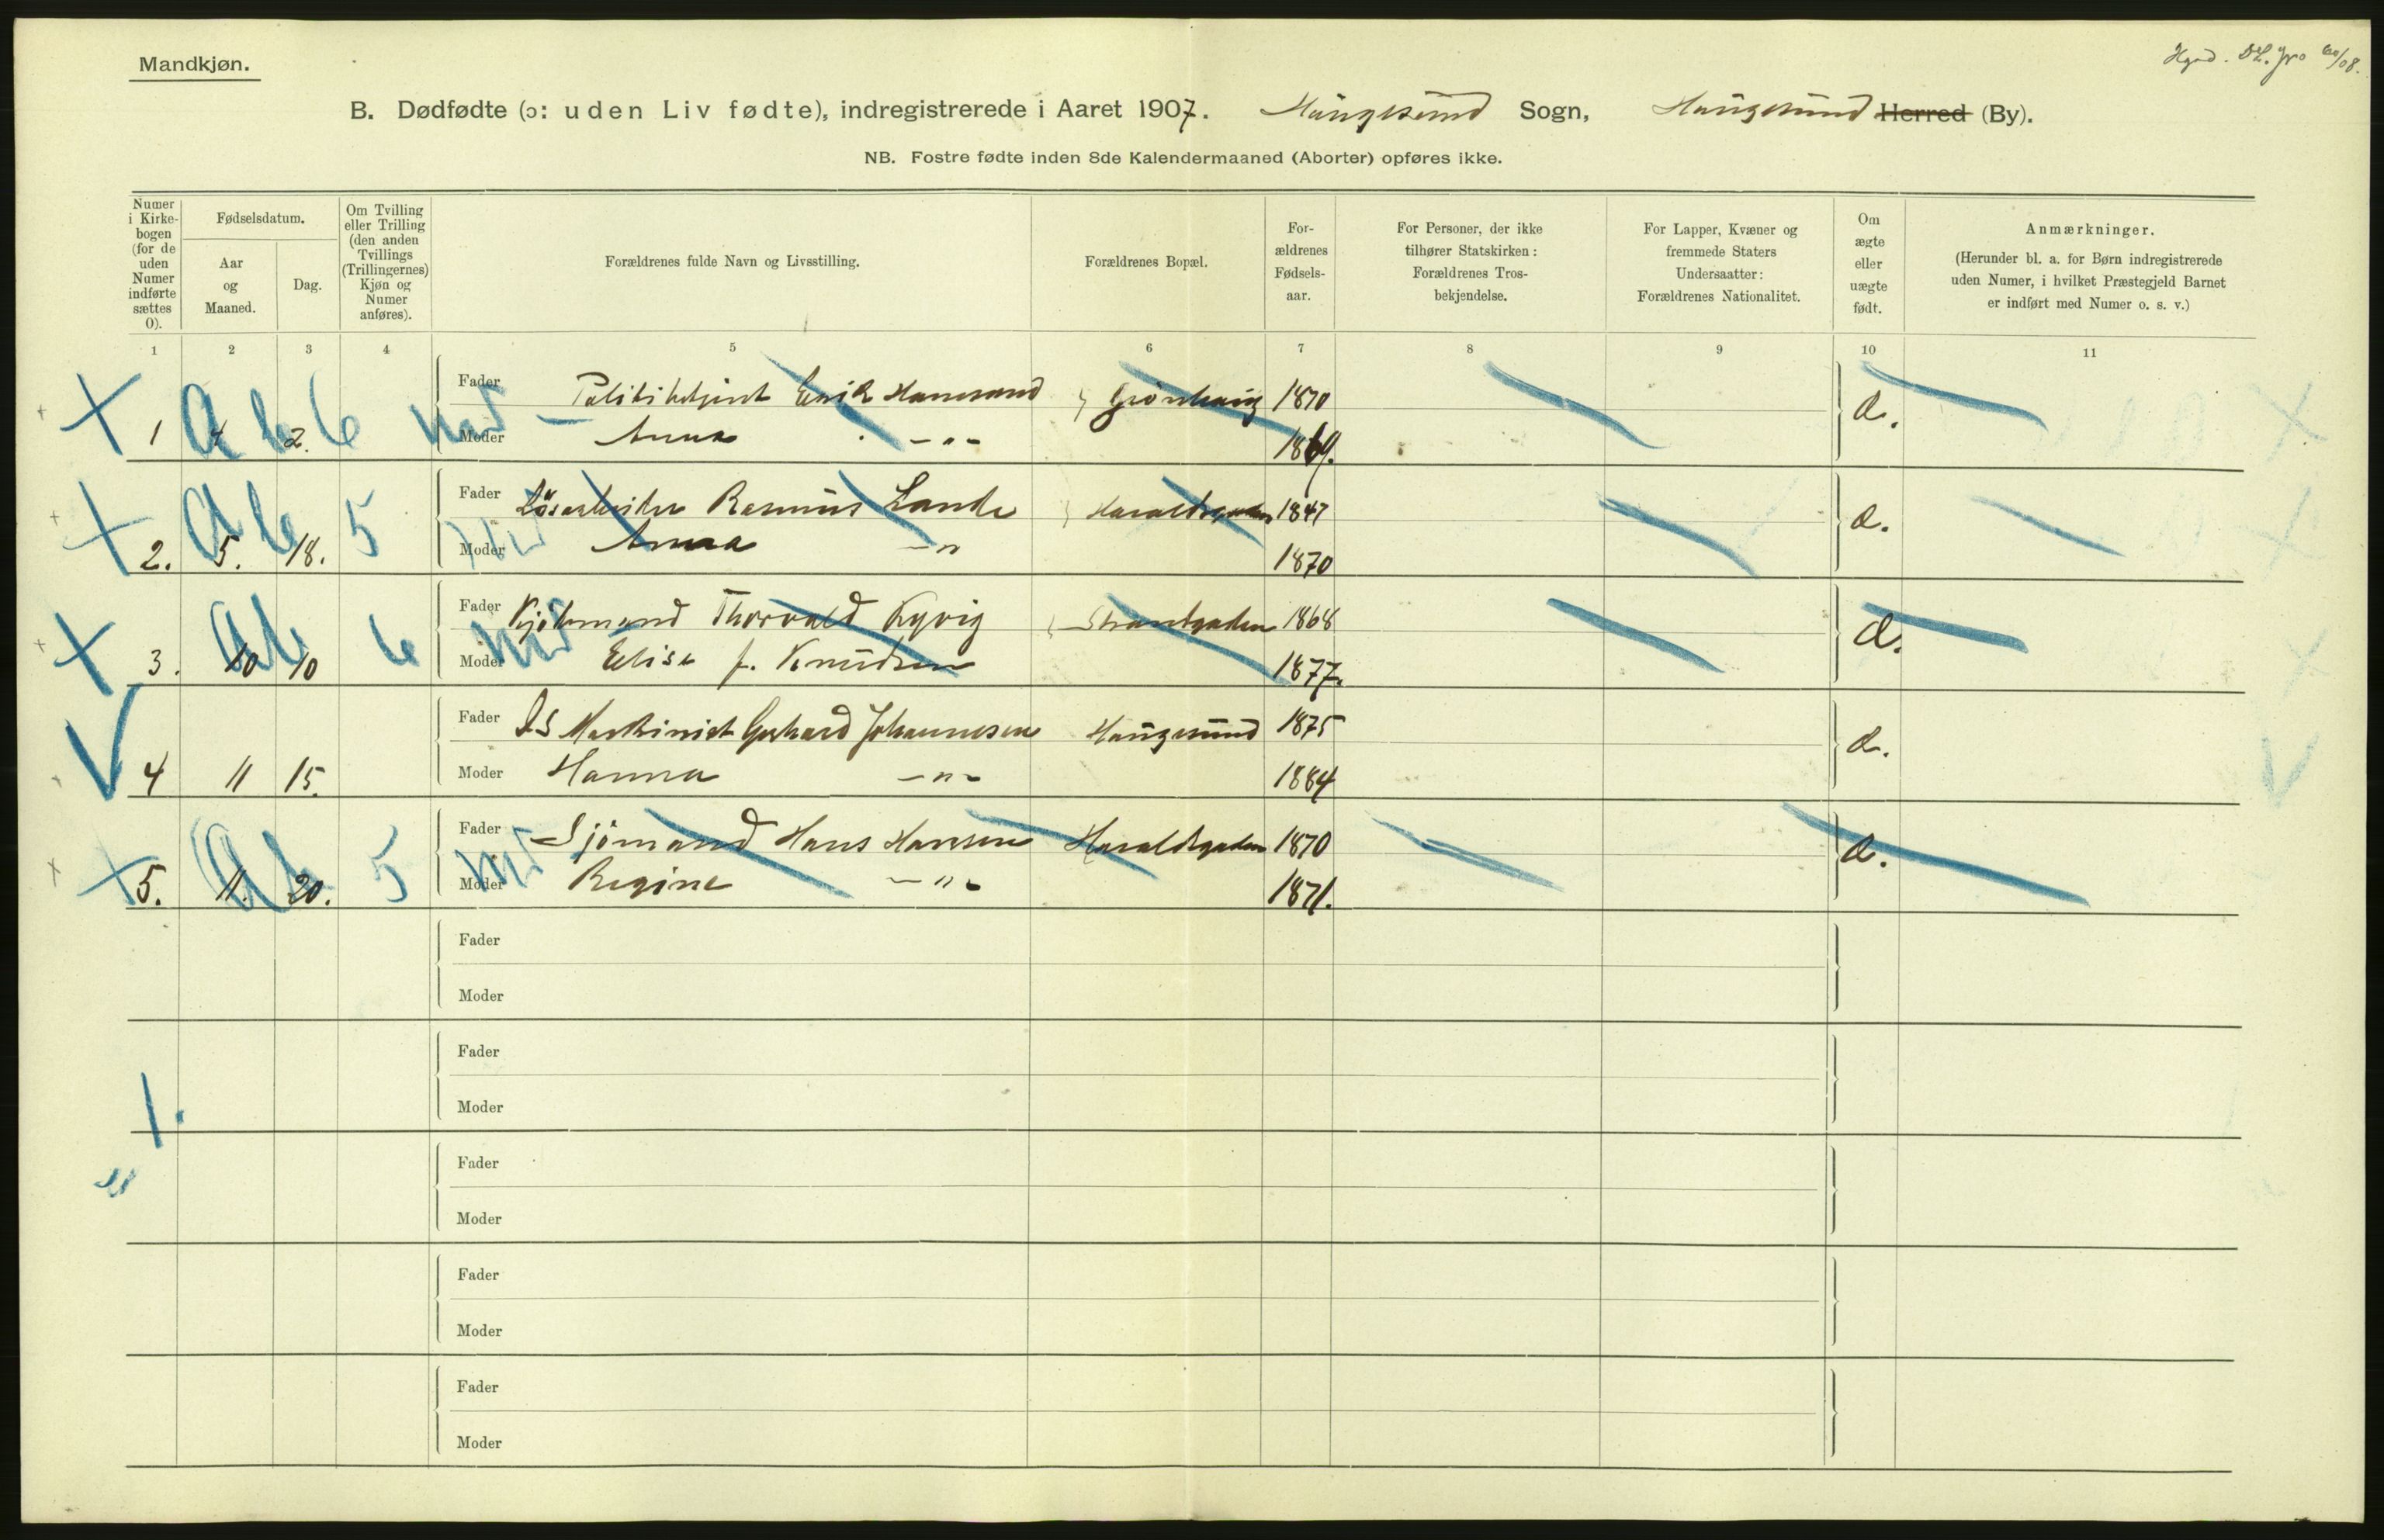 Mandkjøn.
B. Dødfødte (ɔ: uden Liv fødte), indregistrerede i Aaret 1907. Haugesund Sogn, Haugesund Herred (By).
NB. Fostre fødte inden 8de Kalendermaaned (Aborter) opføres ikke.
Numer i Kirkebogen (for de uden Numer indførte sættes 0).
Fødselsdatum.
Aar og Maaned.
Dag.
Om Tvilling eller Trilling (den anden Tvillings (Trillingernes) Kjøn og Numer anføres).
Forældrenes fulde Navn og Livsstilling.
Forældrenes Bopæl.
Forældrenes Fødselsaar.
For Personer, der ikke tilhører Statskirken: Forældrenes Trosbekjendelse.
For Lapper, Kvæner og fremmede Staters Undersaatter: Forældrenes Nationalitet.
Om ægte eller uægte født.
Anmærkninger.
(Herunder bl. a. for Børn indregistrerede uden Numer, i hvilket Præstegjeld Barnet er indført med Numer o. s. v.)
1 2 3 4 5 6 7 8 9 10 11
Fader Politibetjent Erik 1870
1 4 2. 6 Moder Anna —"— 1869.
Fader Løsarbeider Rasmus Lande Haraldsgaden 1847
2. 5. 18. 5 Moder Anna —" 1870
Fader Kjøbmand Thorvald Kyvig Strandgaden 1868
3. 10 10 6 Moder Elise f. Knudsen 1877.
Fader DS Maskinist Gerhard Johannesen Haugesund 1875
4 11 15. Moder Hanna —"— 1884
Fader Sjømand Hans Hansen Haraldsgaden 1870
5. 11. 20. 5 Moder Regine —"— 1871.
Fader
Moder
Fader
Moder
1.
Fader
Moder
Fader
Moder
Fader
Moder